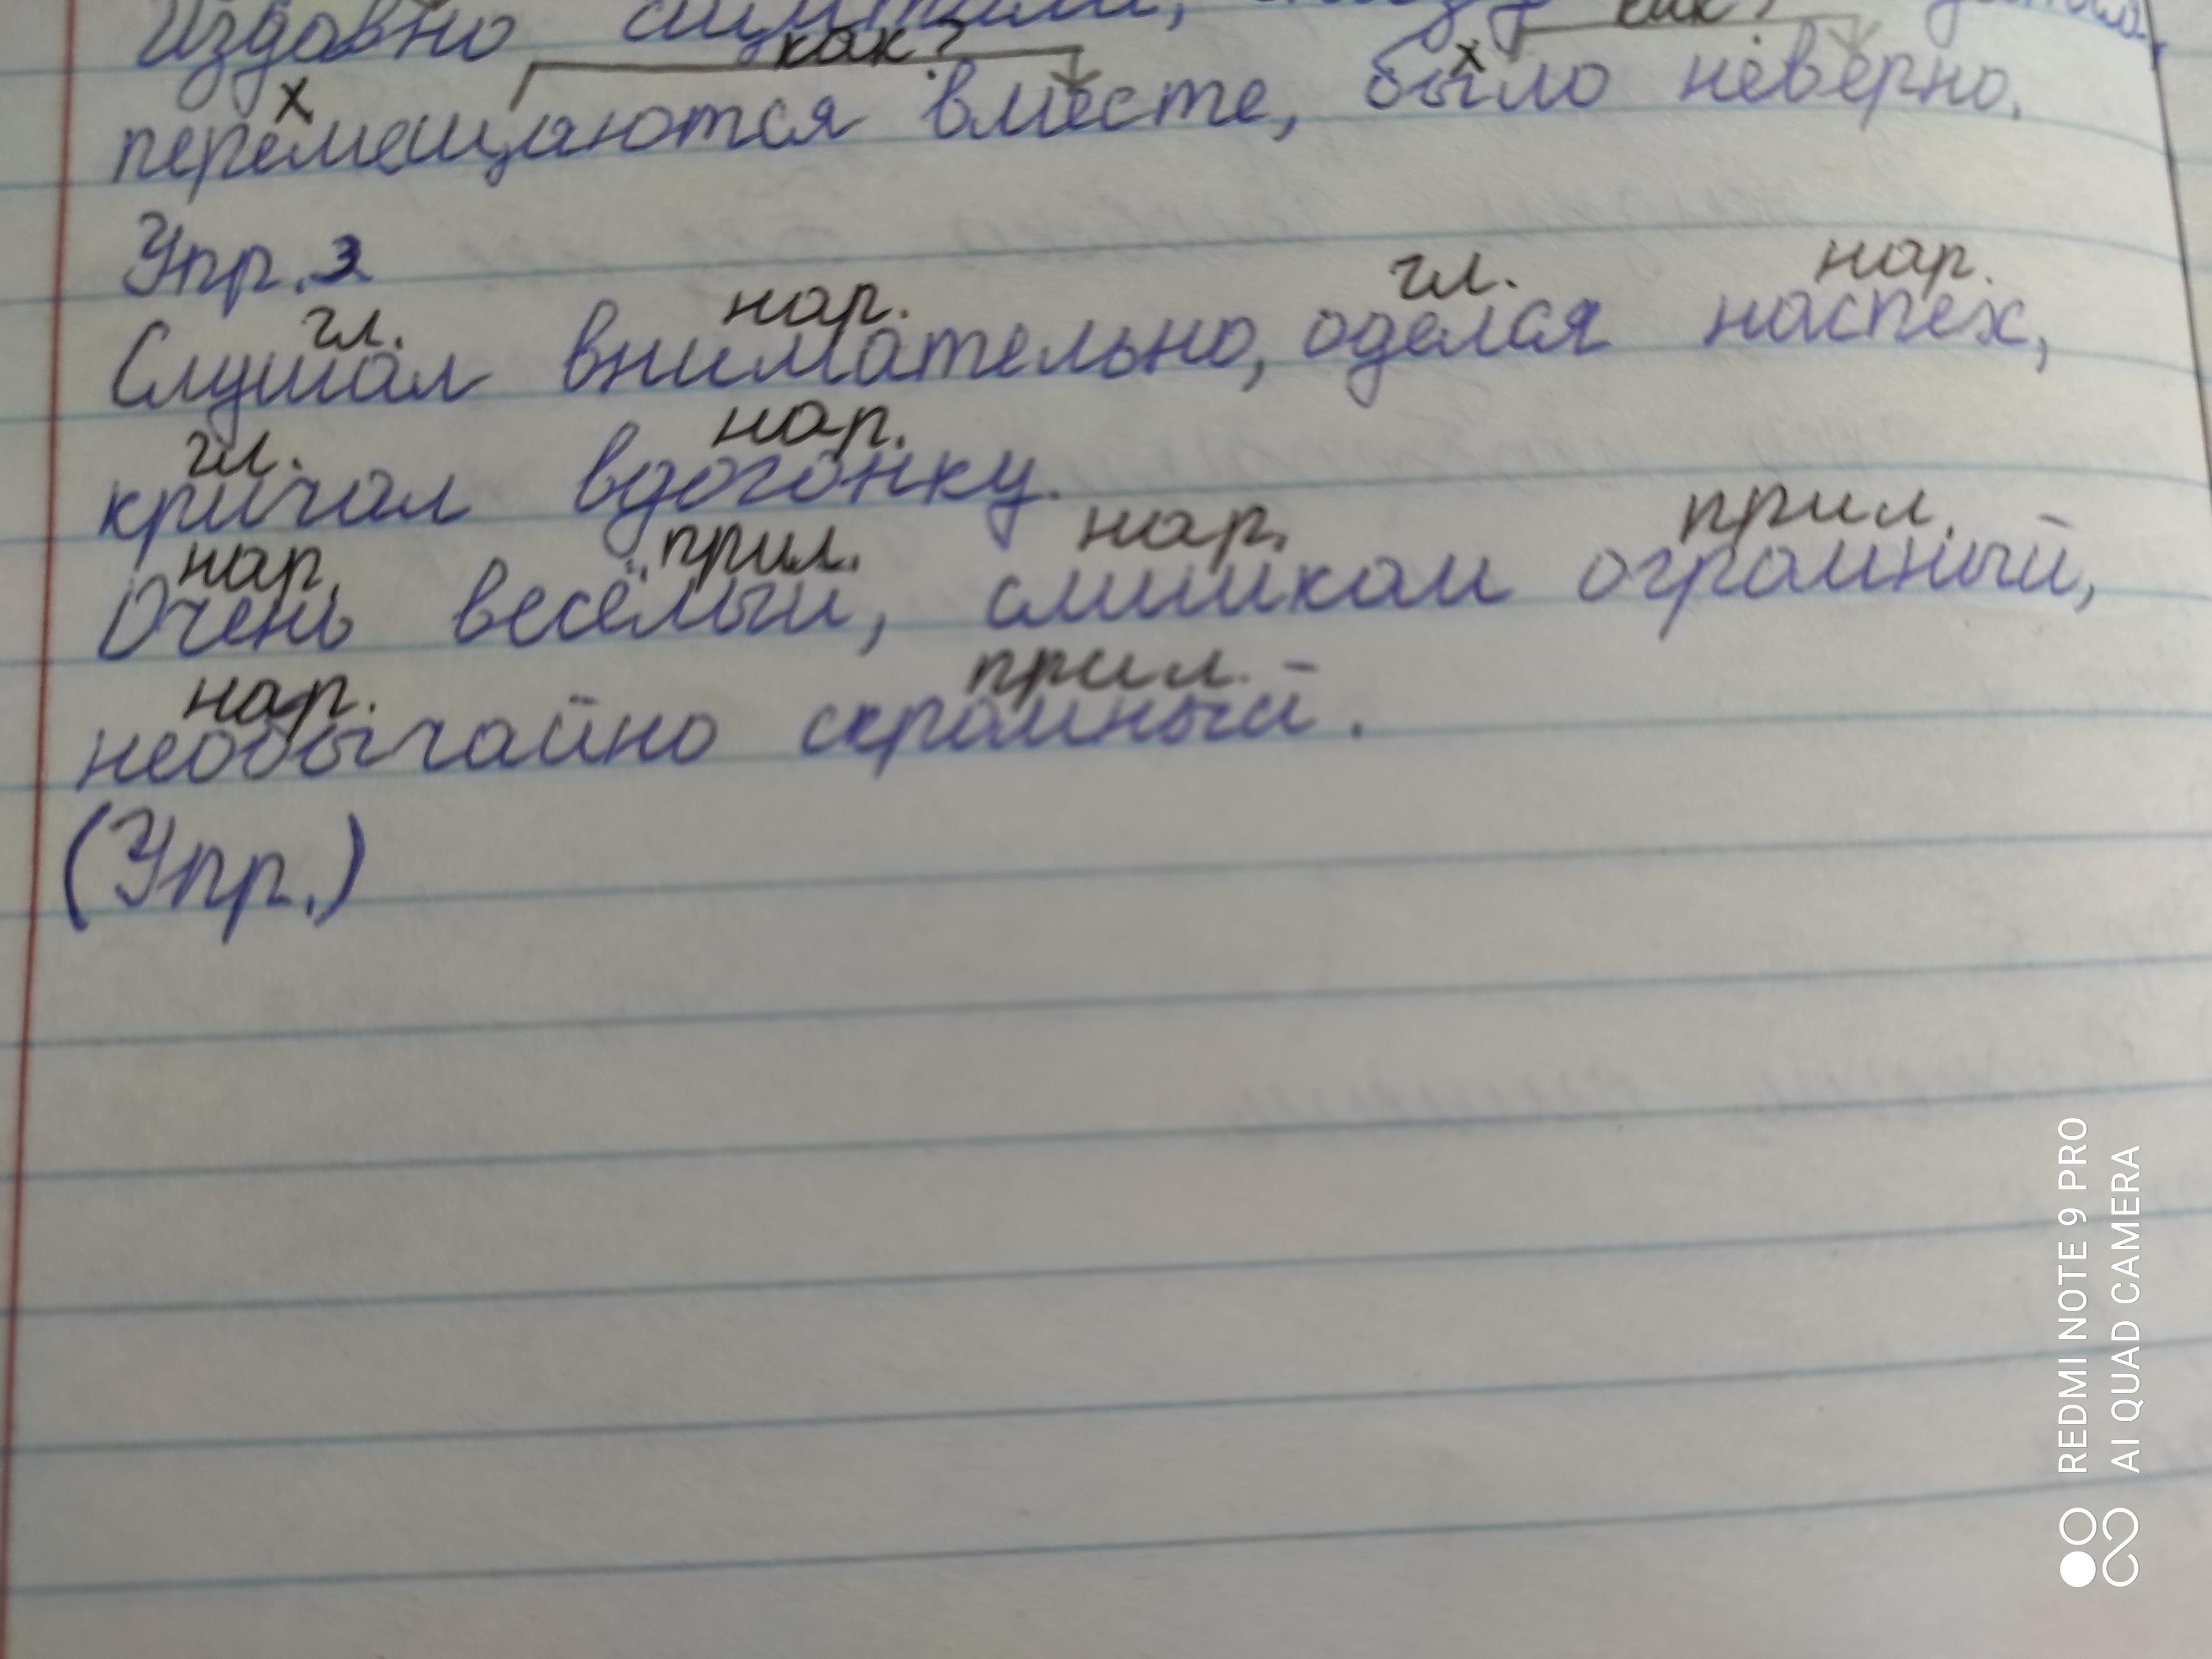 Издавно считали,
как?
х х
перемещаются вместе, было неверно.
Упр. 3
гл. нар. гл. нар.
Слушал внимательно, оделся наспех,
гл. нар.
кричал вдогонку.
нар. прил. нар. прил.
Очень весёлый, слишком огромный,
нар. прил.
необычайно скромный.
(Упр.)
REDMI NOTE 9 PRO
AI QUAD CAMERA